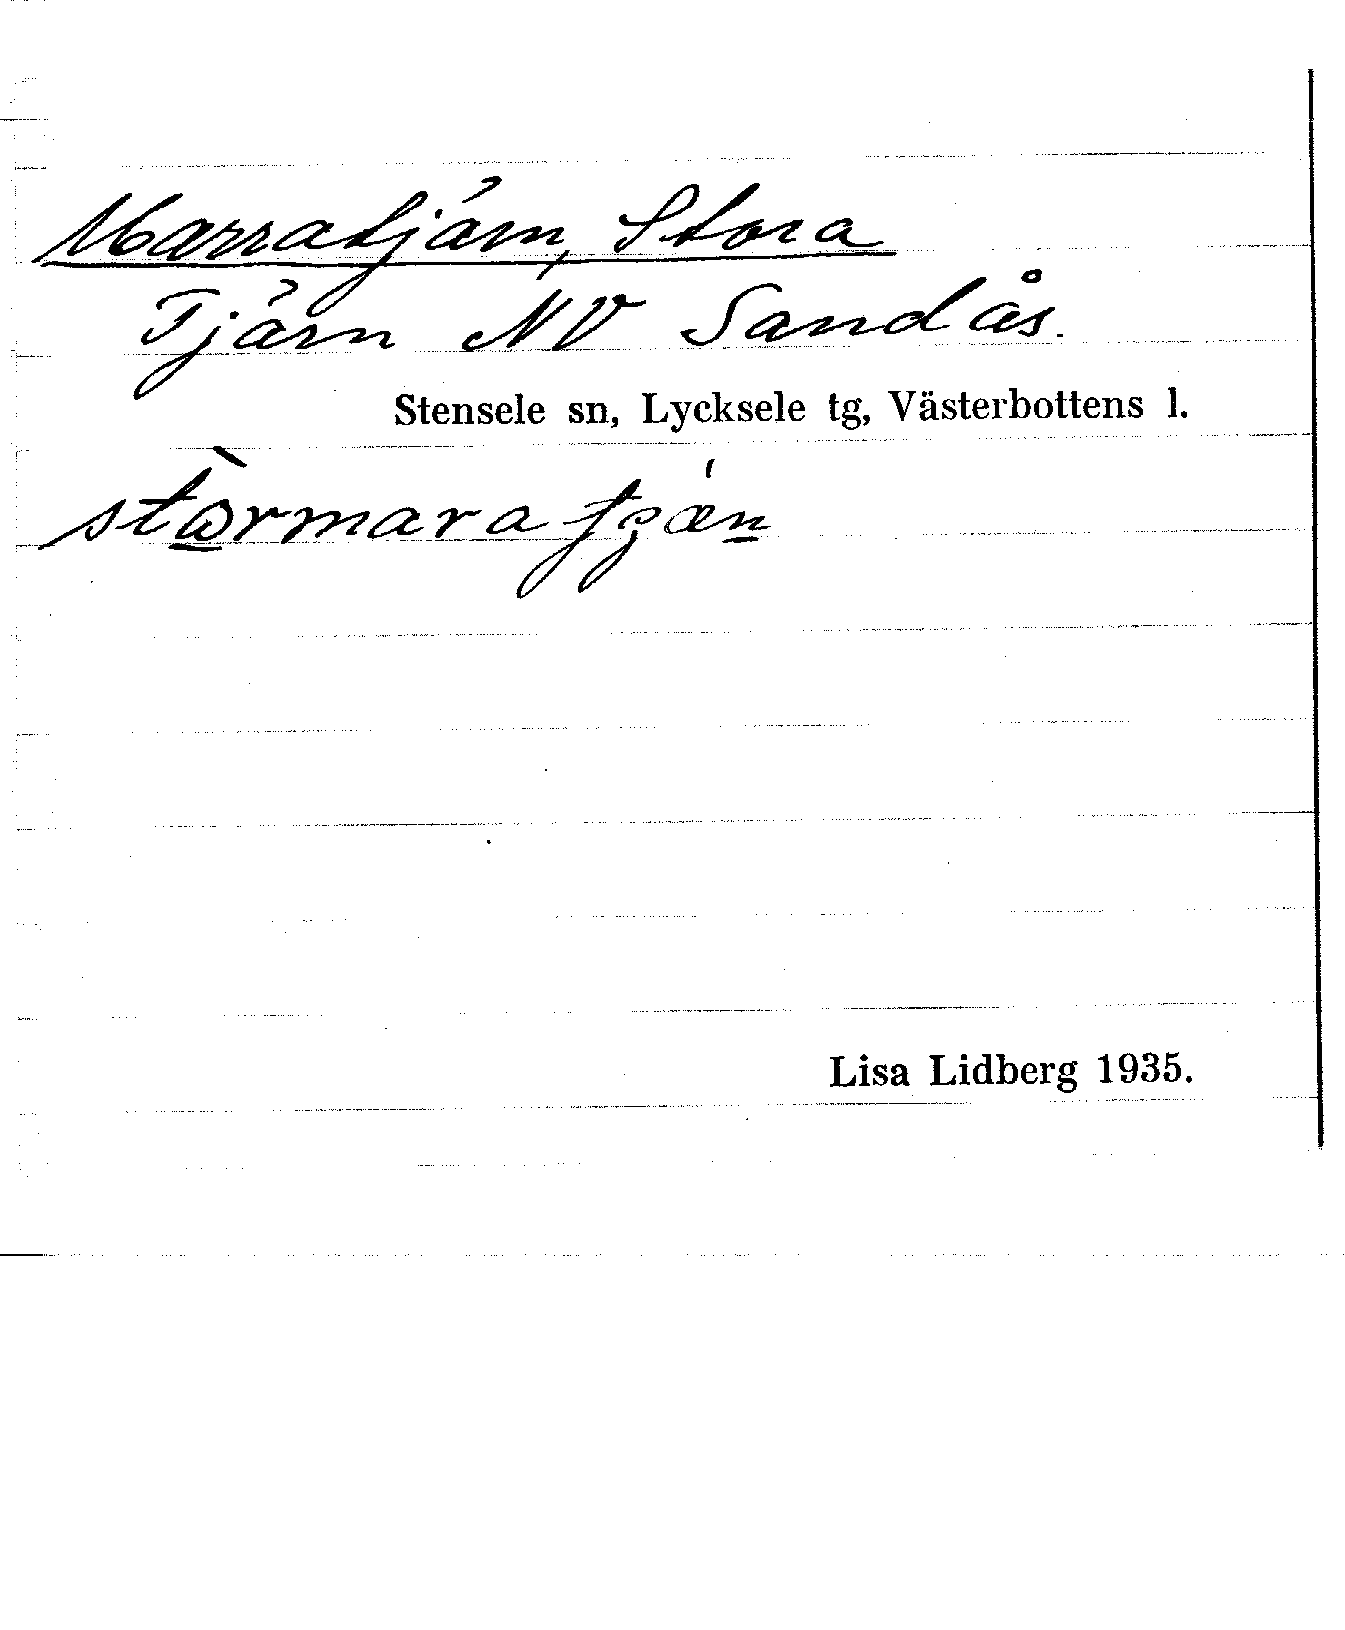 Marratjärn, Stora
Tjärn NV Sandås.
Stensele sn, Lycksele tg, Västerbottens l.
Lisa Lidberg 1935.